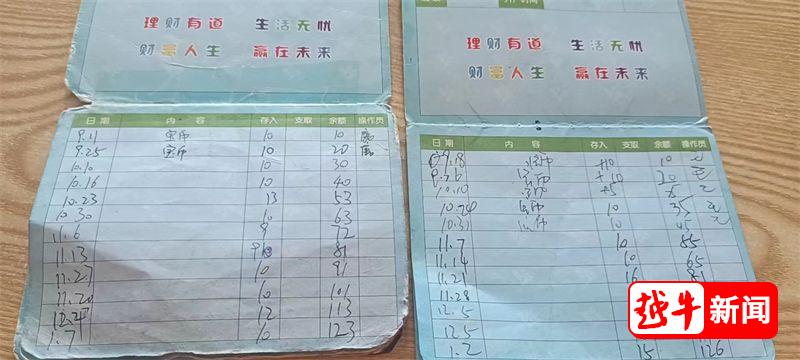 理财有道 生活无忧
财富人生 赢在未来
日期 内容 存入 支取 余额 操作员
9.11 宝币 10 10
9.25 宝币 10 20
10.10 10 30
10.16 10 40
10.23 13 53
10.30 10 63
11.6 9 72
11.13 81
11.27 10 91
11.20 10 101
12.4 12 113
1.7 10 123
理财有道 生活无忧
财富人生 赢在未来
日期 内容 存入 支取 余额 操作员
9.18 +10 10
+10 20
10.10 +5
10.24 宝币 10 35
10.31 10 45
11.7 10 55
11.14 10 65
11.21 16 81
11.28
12.5
12.5
1.2 15 126
越牛新闻